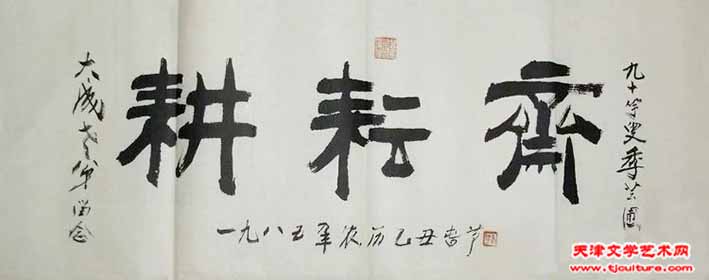 大成老弟留念
耕耘齋
一九八五年农历乙丑春节
九十叟季圃
天津文学艺术网
www.tjculture.com